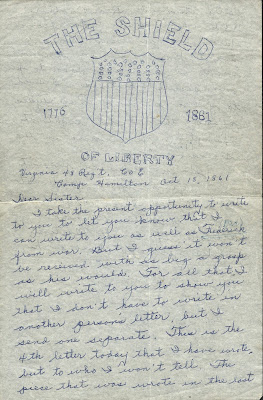 THE SHIELD
1776 1861
OF LIBERTY
Virginia 48 Regt, Co E
Camp Hamilton Oct 18, 1861
Dear Sister
I take the present opportunity to write
to you to let you know that I
can write to you as well as Frederick
from war. But I guess it won't
be received with as big a grasp
as his would. For all that I
will write to you to show you
that I don't have to write in
another person's letter, but I
send one separate. This is the
4th letter today that I have wrote,
but to who I won't tell. The
piece that was wrote in the last